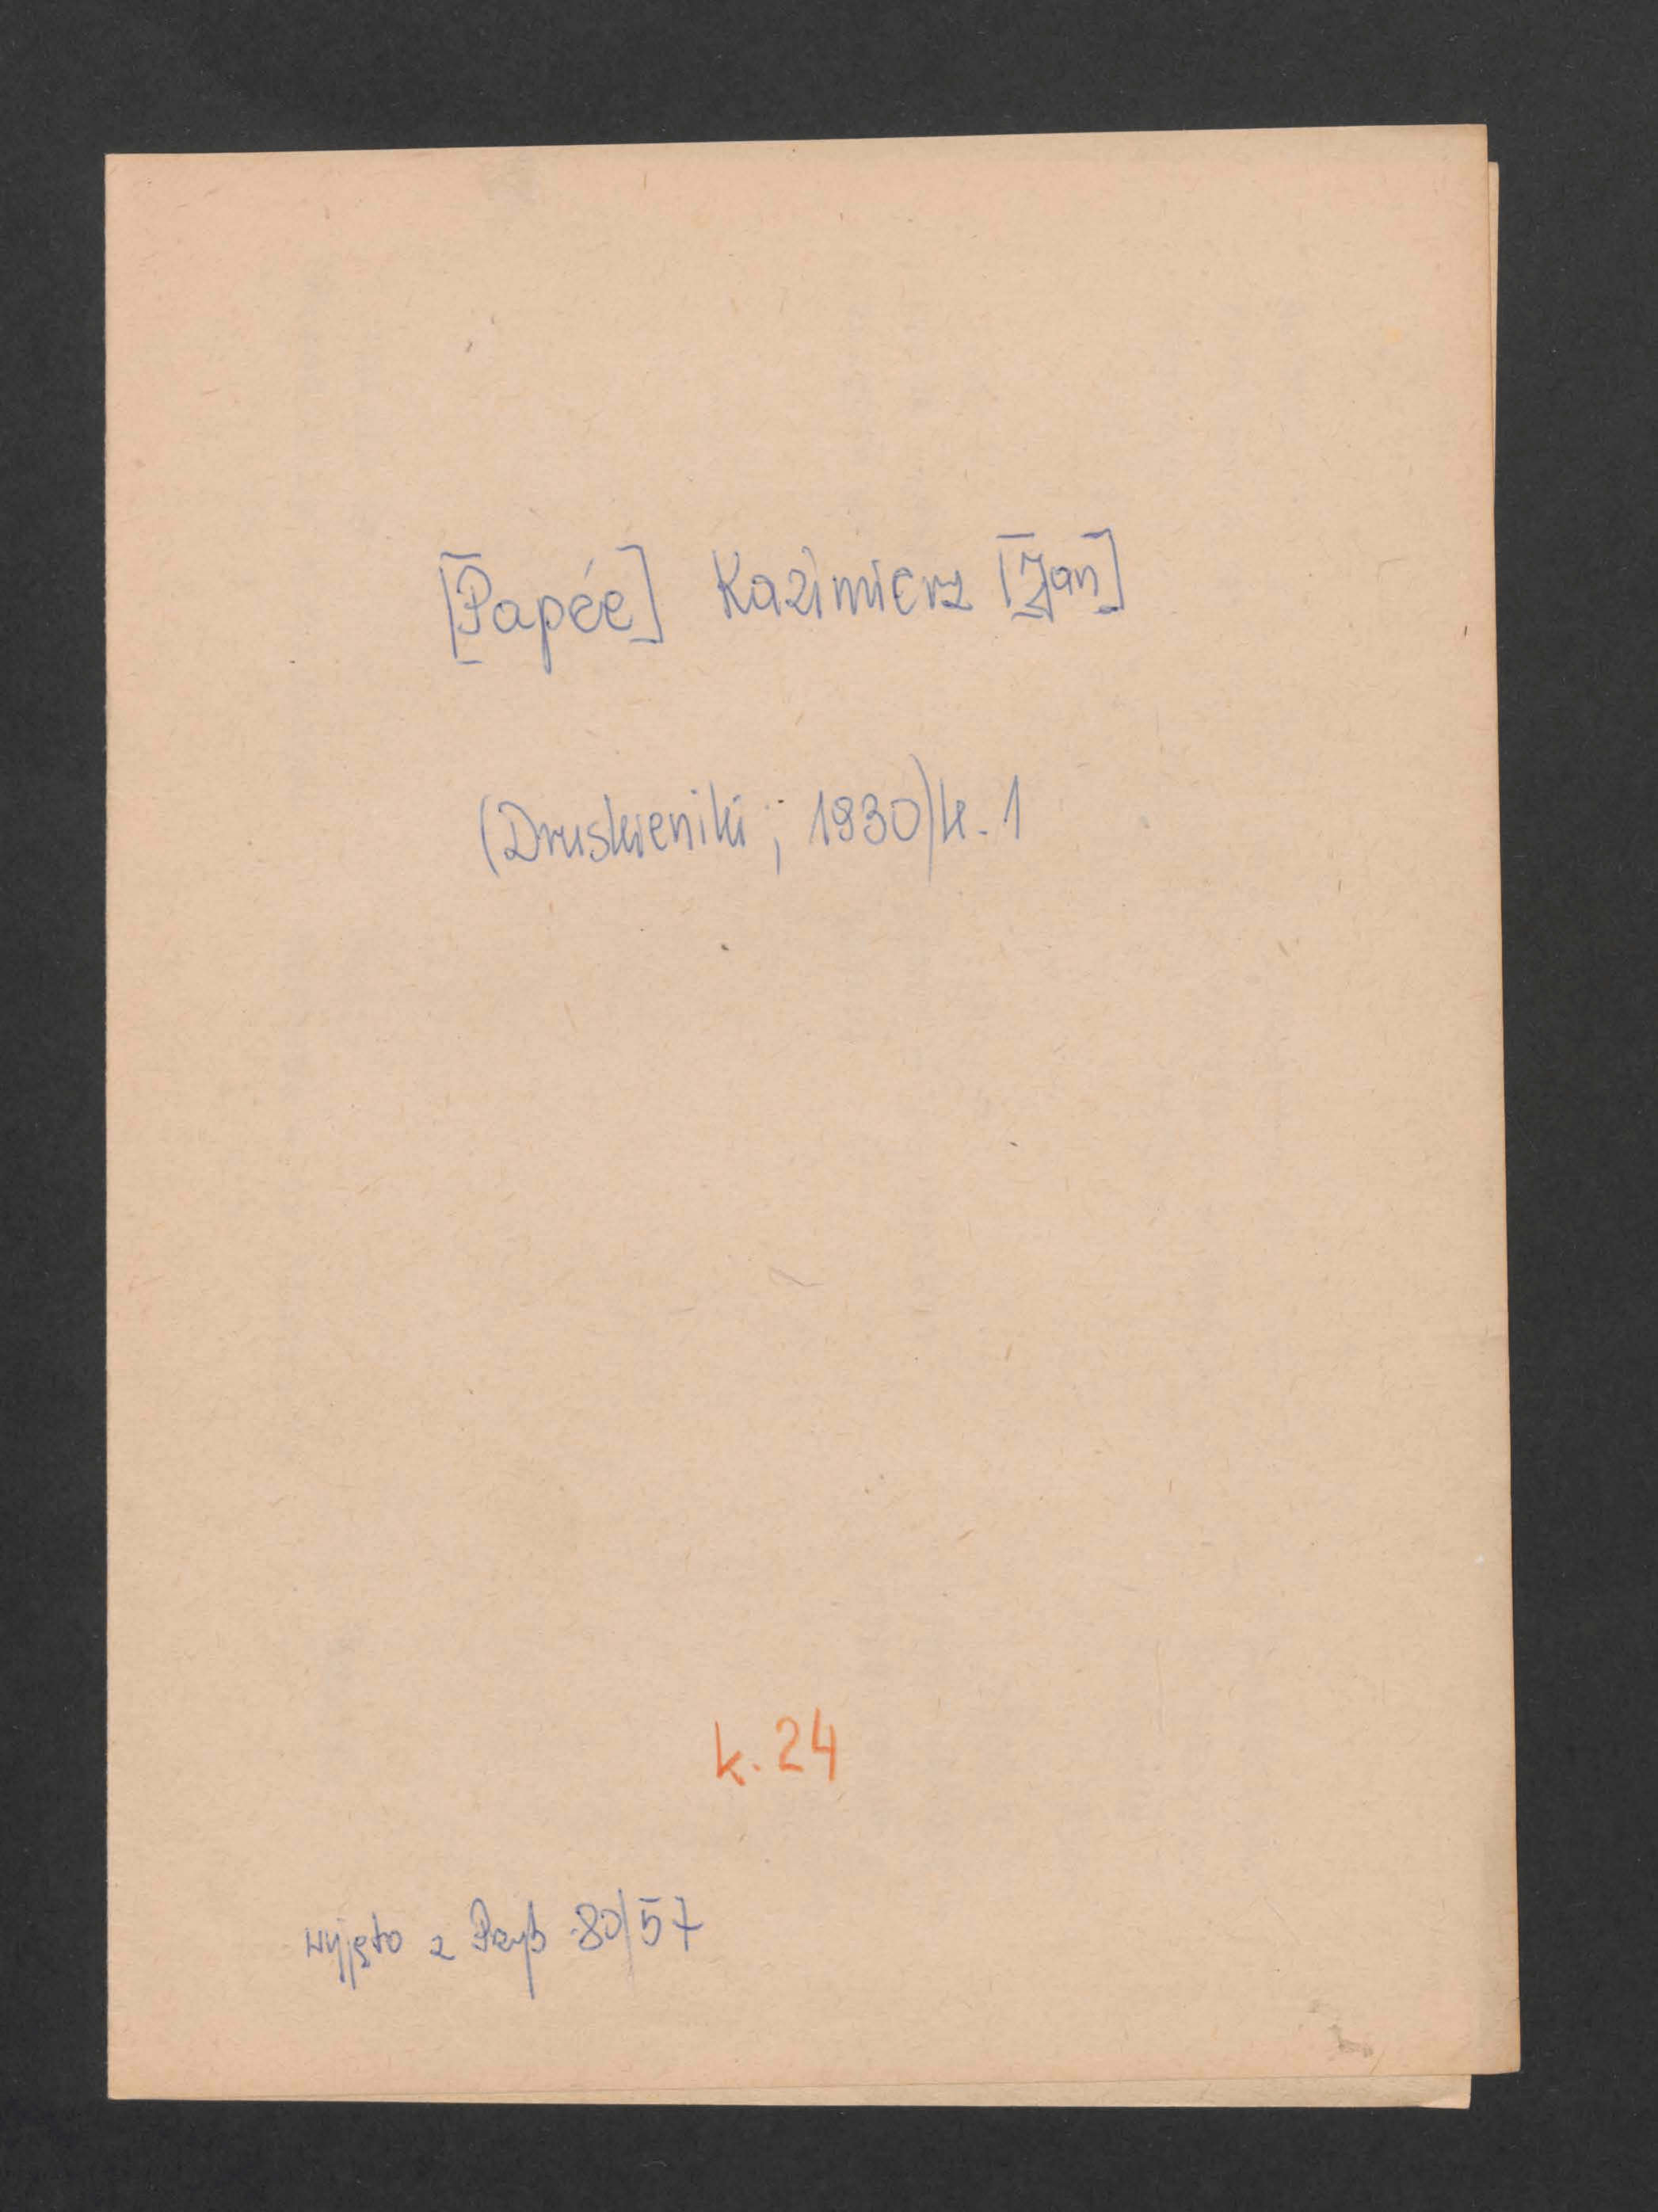 [Papée] Kazimierz [Jan]
(Druskieniki; 1930) k. 1
k. 24
wyjęto z Przyb 80/57